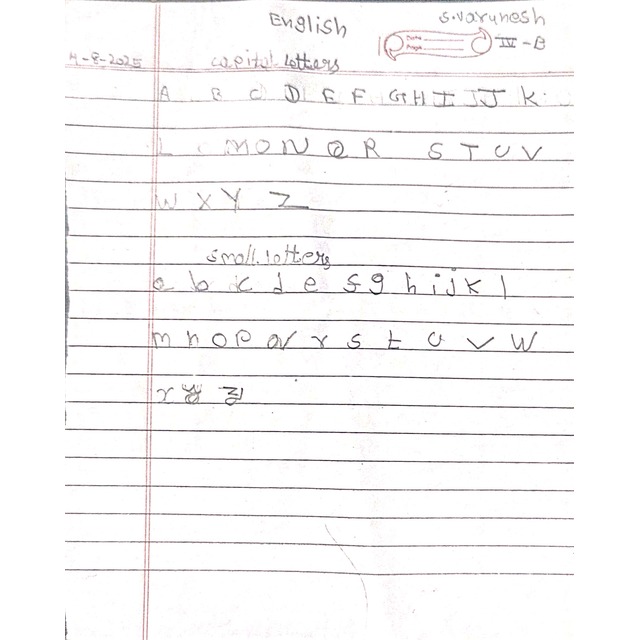 English
S.varunesh
IV-B
Date
Page
4-8-2025
capital lotters
A B C D E F G H I J K
L M O N Q R S T U V
W X Y Z
small lotters
a b c d e s g h i j k l
m n o p r s t u v w
x